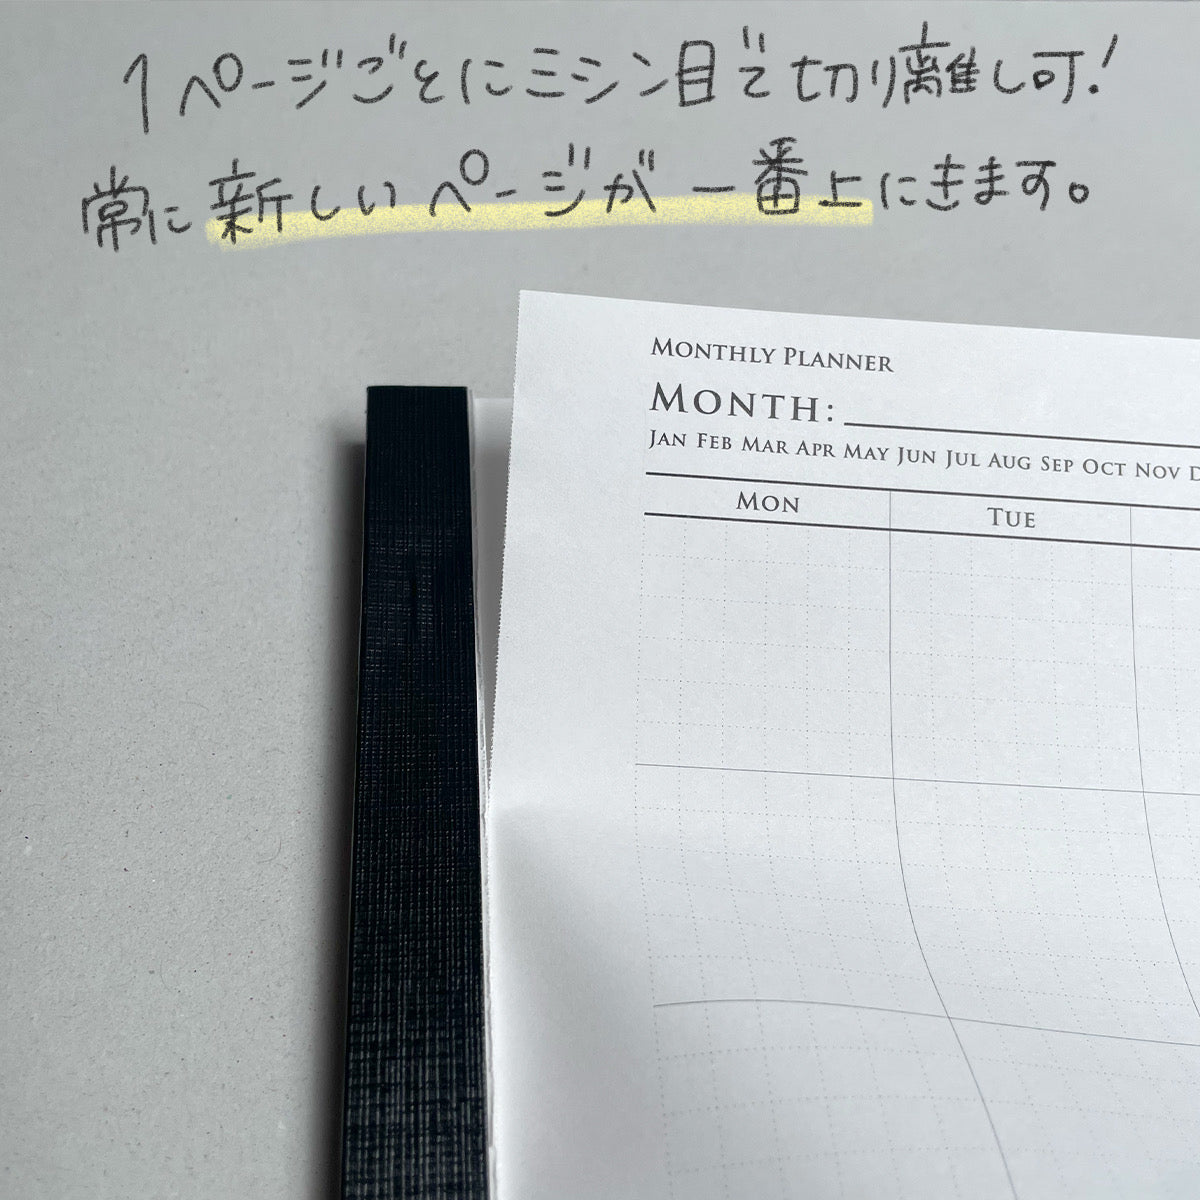 1ページごとにミシン目で切り離し可!
常に新しいページが一番上にきます。
MONTHLY PLANNER
MONTH:
JAN FEB MAR APR MAY JUN JUL AUG SEP OCT NOV
MON TUE